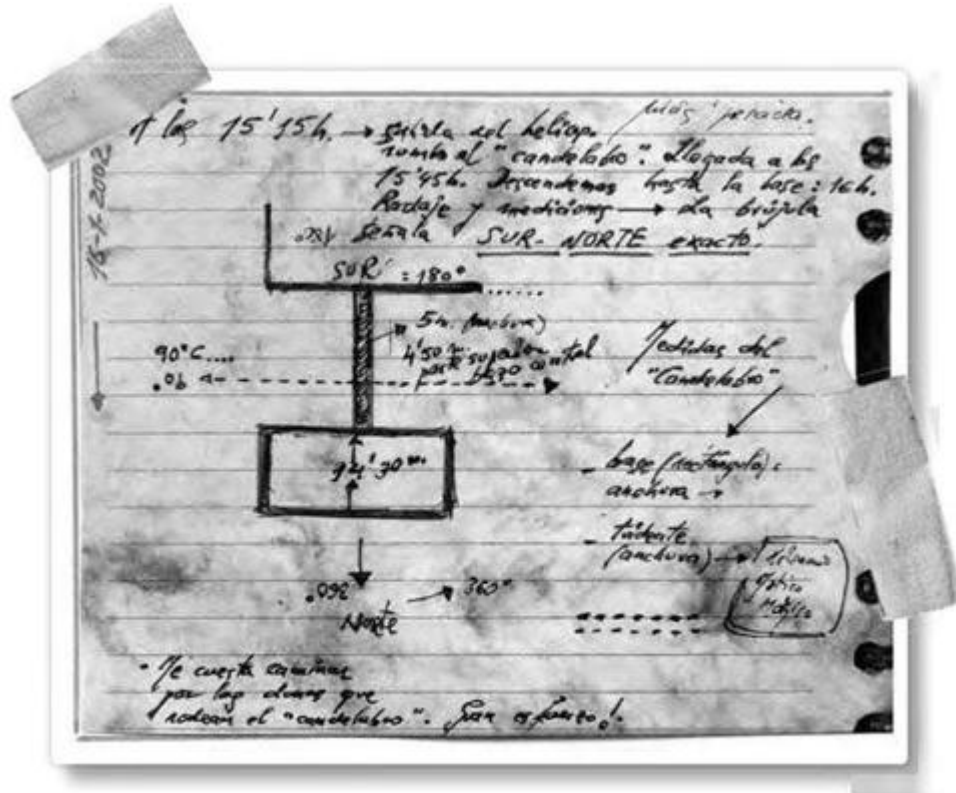 A las 15'15h. → salida del helicop.
rumbo al "candelabro". Llegada a las
15'45h. Descendemos hasta la base: 16h.
Rodaje y mediciones → La brújula
señala SUR-NORTE exacto.
180°
SUR = 180° ......
5 m. (anchura)
4'50 m.
parte superior
brazo central
90°C....
90°
94'30 m.
Medidas del
"Candelabro"
- base (rectángulo):
anchura →
- tridente
(anchura) →
360° → 360°
Norte
• Me cuesta caminar
por las dunas que
rodean el "candelabro". Gran esfuerzo!.